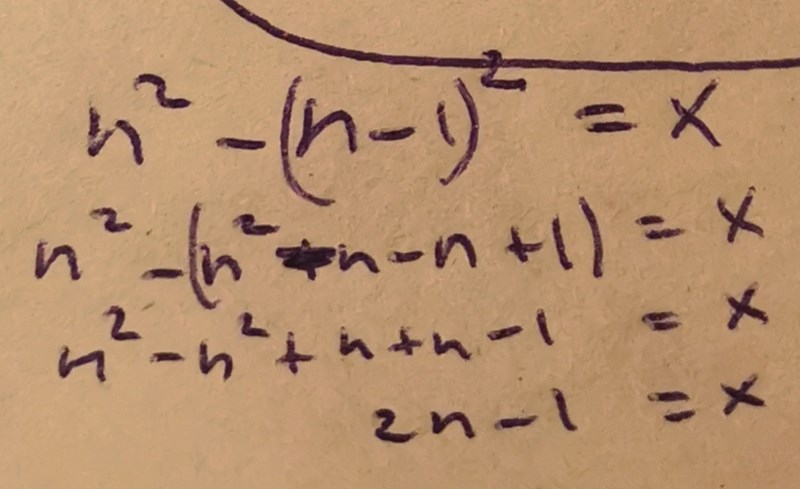 n² - (n - 1)² = x
n² - (n² - n - n + 1) = x
n² - n² + n + n - 1 = x
2n - 1 = x